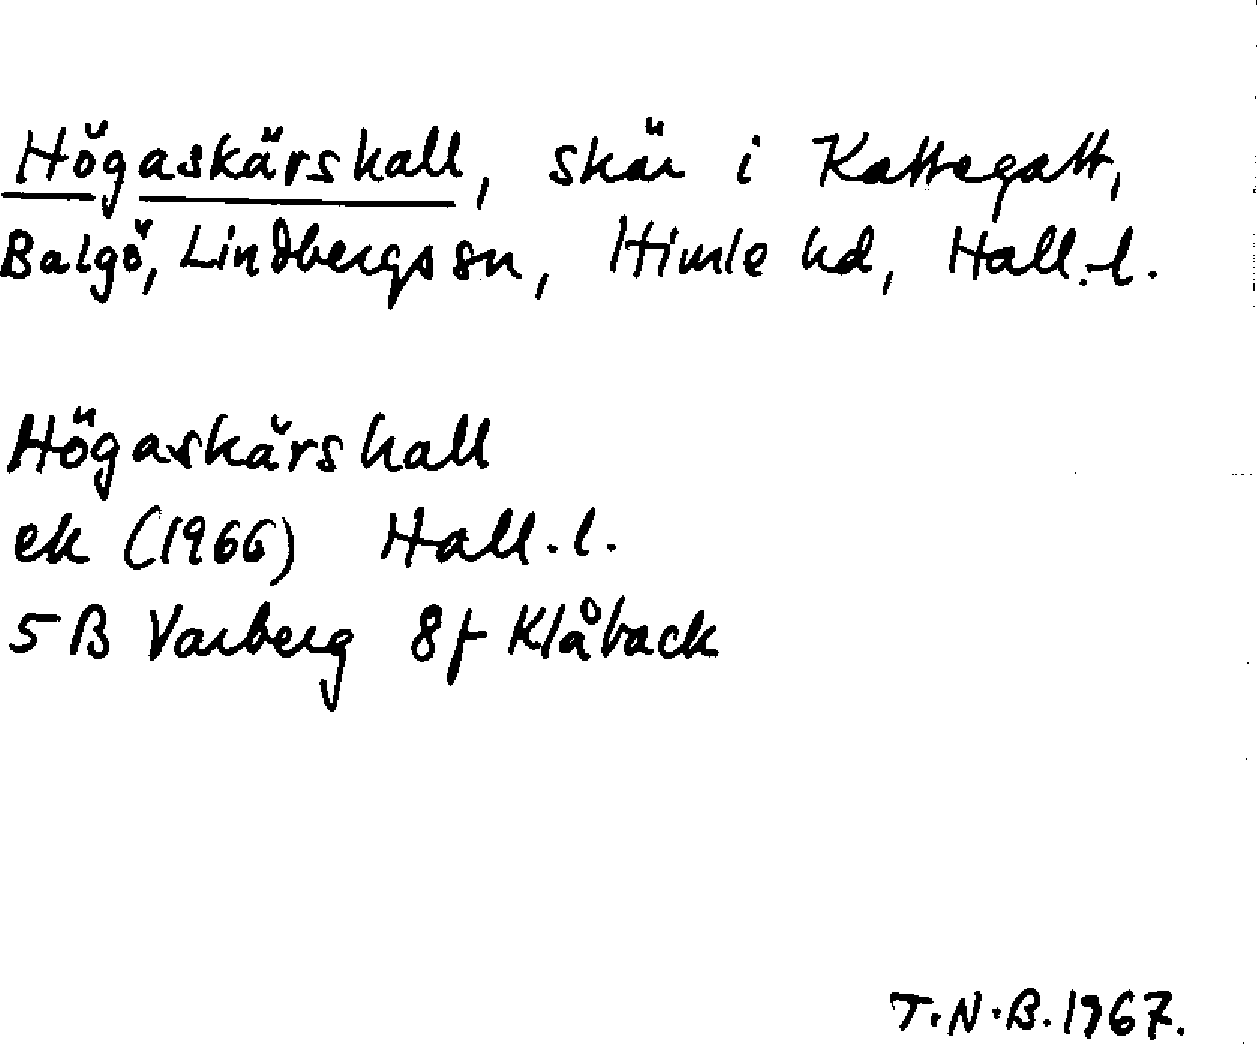 Högaskärshall, skär i Kattegatt,
Balgö, Lindbergs sn, Himle hd, Hall. l.
Högaskärshall
ek (1966) Hall. l.
5 B Varberg 8f Klåback
T.N.B. 1967.